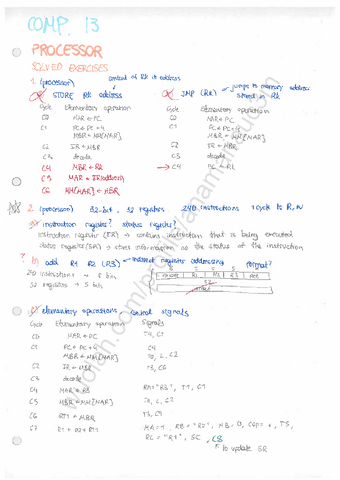 COMP. 13
PROCESSOR
SOLVED EXERCISES
1. (processor)
content of Rk in address
a) STORE Rk address
Cycle Elementary operation
C0 MAR ← PC
C1 PC ← PC + 4
MBR ← MM[MAR]
C2 IR ← MBR
C3 decode
C4 MBR ← Rk
C5 MAR ← IR(address)
C6 MM[MAR] ← MBR
b) JMP (Rk)
jumps to memory address
stored in Rk
Cycle Elementary operation
C0 MAR ← PC
C1 PC ← PC + 4
MBR ← MM[MAR]
C2 IR ← MBR
C3 decode
→ C4 PC ← Rk
2. (processor) 32-bit, 32 registers 240 instructions 1 cycle to R, W
a) instruction register? status register?
instruction register (IR) → contains instruction that is being executed
status register (SR) → stores information on the status of the instruction
? b) add R1 R2 (R3) → indirect register addressing format?
240 instructions → 8 bits
32 registers → 5 bits
8 5 5 5
R1 R2 R3
32
c) elementary operations, control signals
Cycle Elementary operation Signals
C0 MAR ← PC T2, C0
C1 PC ← PC + 4 C4
MBR ← MM[MAR] Ta, L, C2
C2 IR ← MBR T3, C6
C3 decode
C4 MAR ← R3 RA = "R3", T1, C0
C5 MBR ← MM[MAR]
C6 RT1 ← MBR
C7 R1 ← R2 + RT1
↑ to update SR